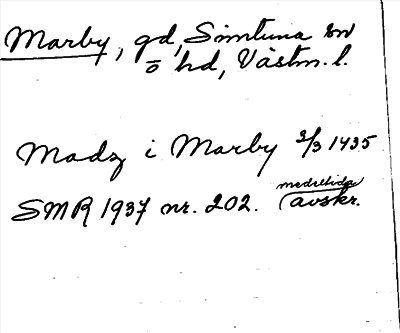 Marby, gd, Simtuna sn
o hd, Västm. l.
Madz i Marby 3/3 1435
SMR 1937 nr. 202. medeltida avskr.